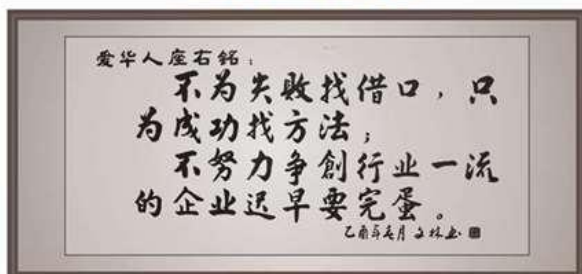 爱华人座右铭：
不为失败找借口，只
为成功找方法；
不努力争創行业一流
的企业迟早要完蛋。
乙酉年春月文林书